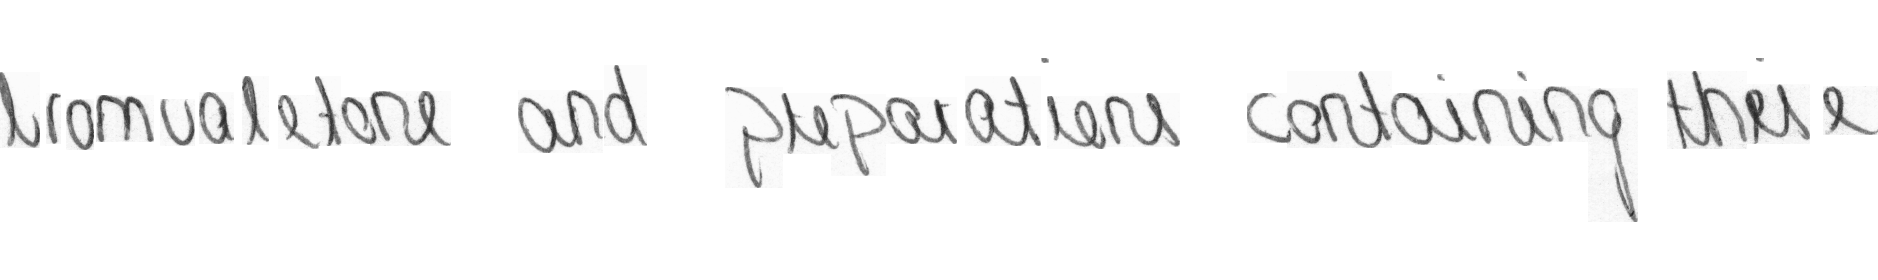 bromvaletone and preparations containing these